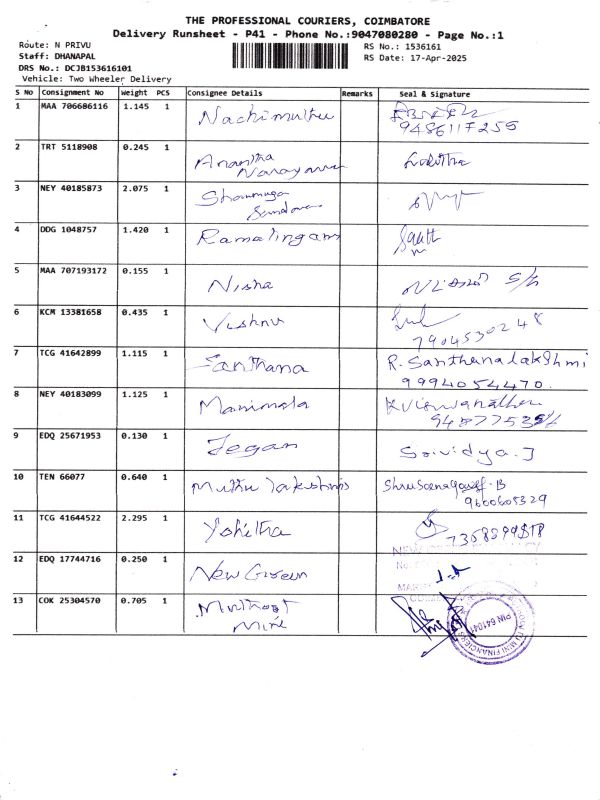 THE PROFESSIONAL COURIERS, COIMBATORE
Delivery Runsheet - P41 - Phone No.:9047080280 - Page No.:1
Route: N PRIVU
RS No.: 1536161
Staff: DHANAPAL
RS Date: 17-Apr-2025
DRS No.: DCJB153616101
Vehicle: Two Wheeler Delivery
S No Consignment No Weight PCS Consignee Details Remarks Seal & Signature
1 MAA 706686116 1.145 1 Nachimuthu
9486117255
2 TRT 5118908 0.245 1 Anantha
Narayanan
3 NEY 40185873 2.075 1 Shanmuga
Sundaram
4 DDG 1048757 1.420 1 Ramalingam
5 MAA 707193172 0.155 1 Nisha
6 KCM 13381658 0.435 1 Vishnu
7904530248
7 TCG 41642899 1.115 1 Santhana R. Santhanalakshmi
9994054470.
8 NEY 40183099 1.125 1 Manimala K Viswanathan
9 EDQ 25671953 0.130 1 Jegan Srividya.J
10 TEN 66077 0.640 1 Muthu lakshmi
9600605329
11 TCG 41644522 2.295 1 Yohitha
12 EDQ 17744716 0.250 1 New Green
13 COK 25304570 0.705 1 Muthoot
PIN 641041